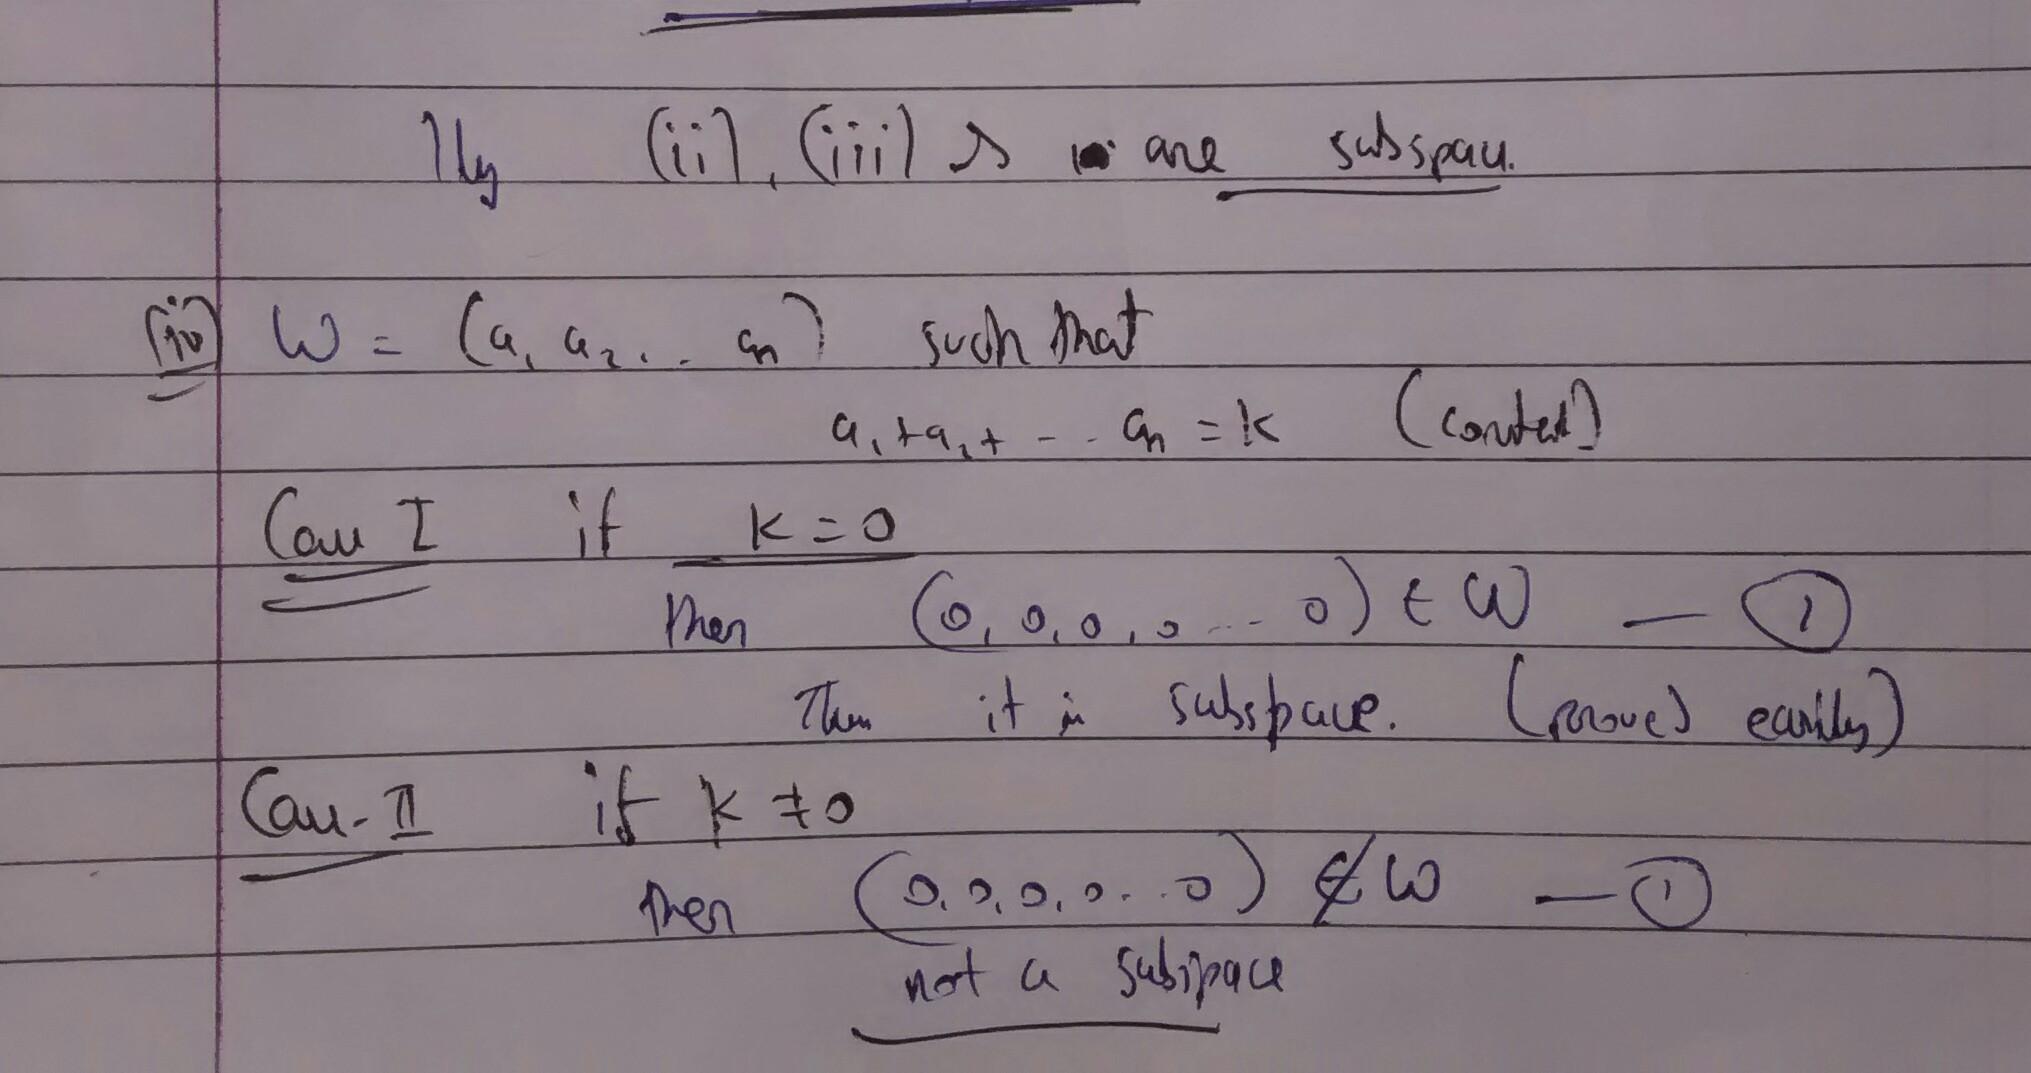 lly (ii), (iii) are subspace.
(iv) W = (a₁ a₂, .. aₙ) such that
a₁+a₂+ - - aₙ = k (constant)
Case I if k=0
then (0, 0, 0, 0 ... 0) ∈ W — ①
Then it is subspace. (proved easily)
Case-II if k ≠ 0
then (0, 0, 0, 0. .. 0) ∉ W — ①
not a subspace